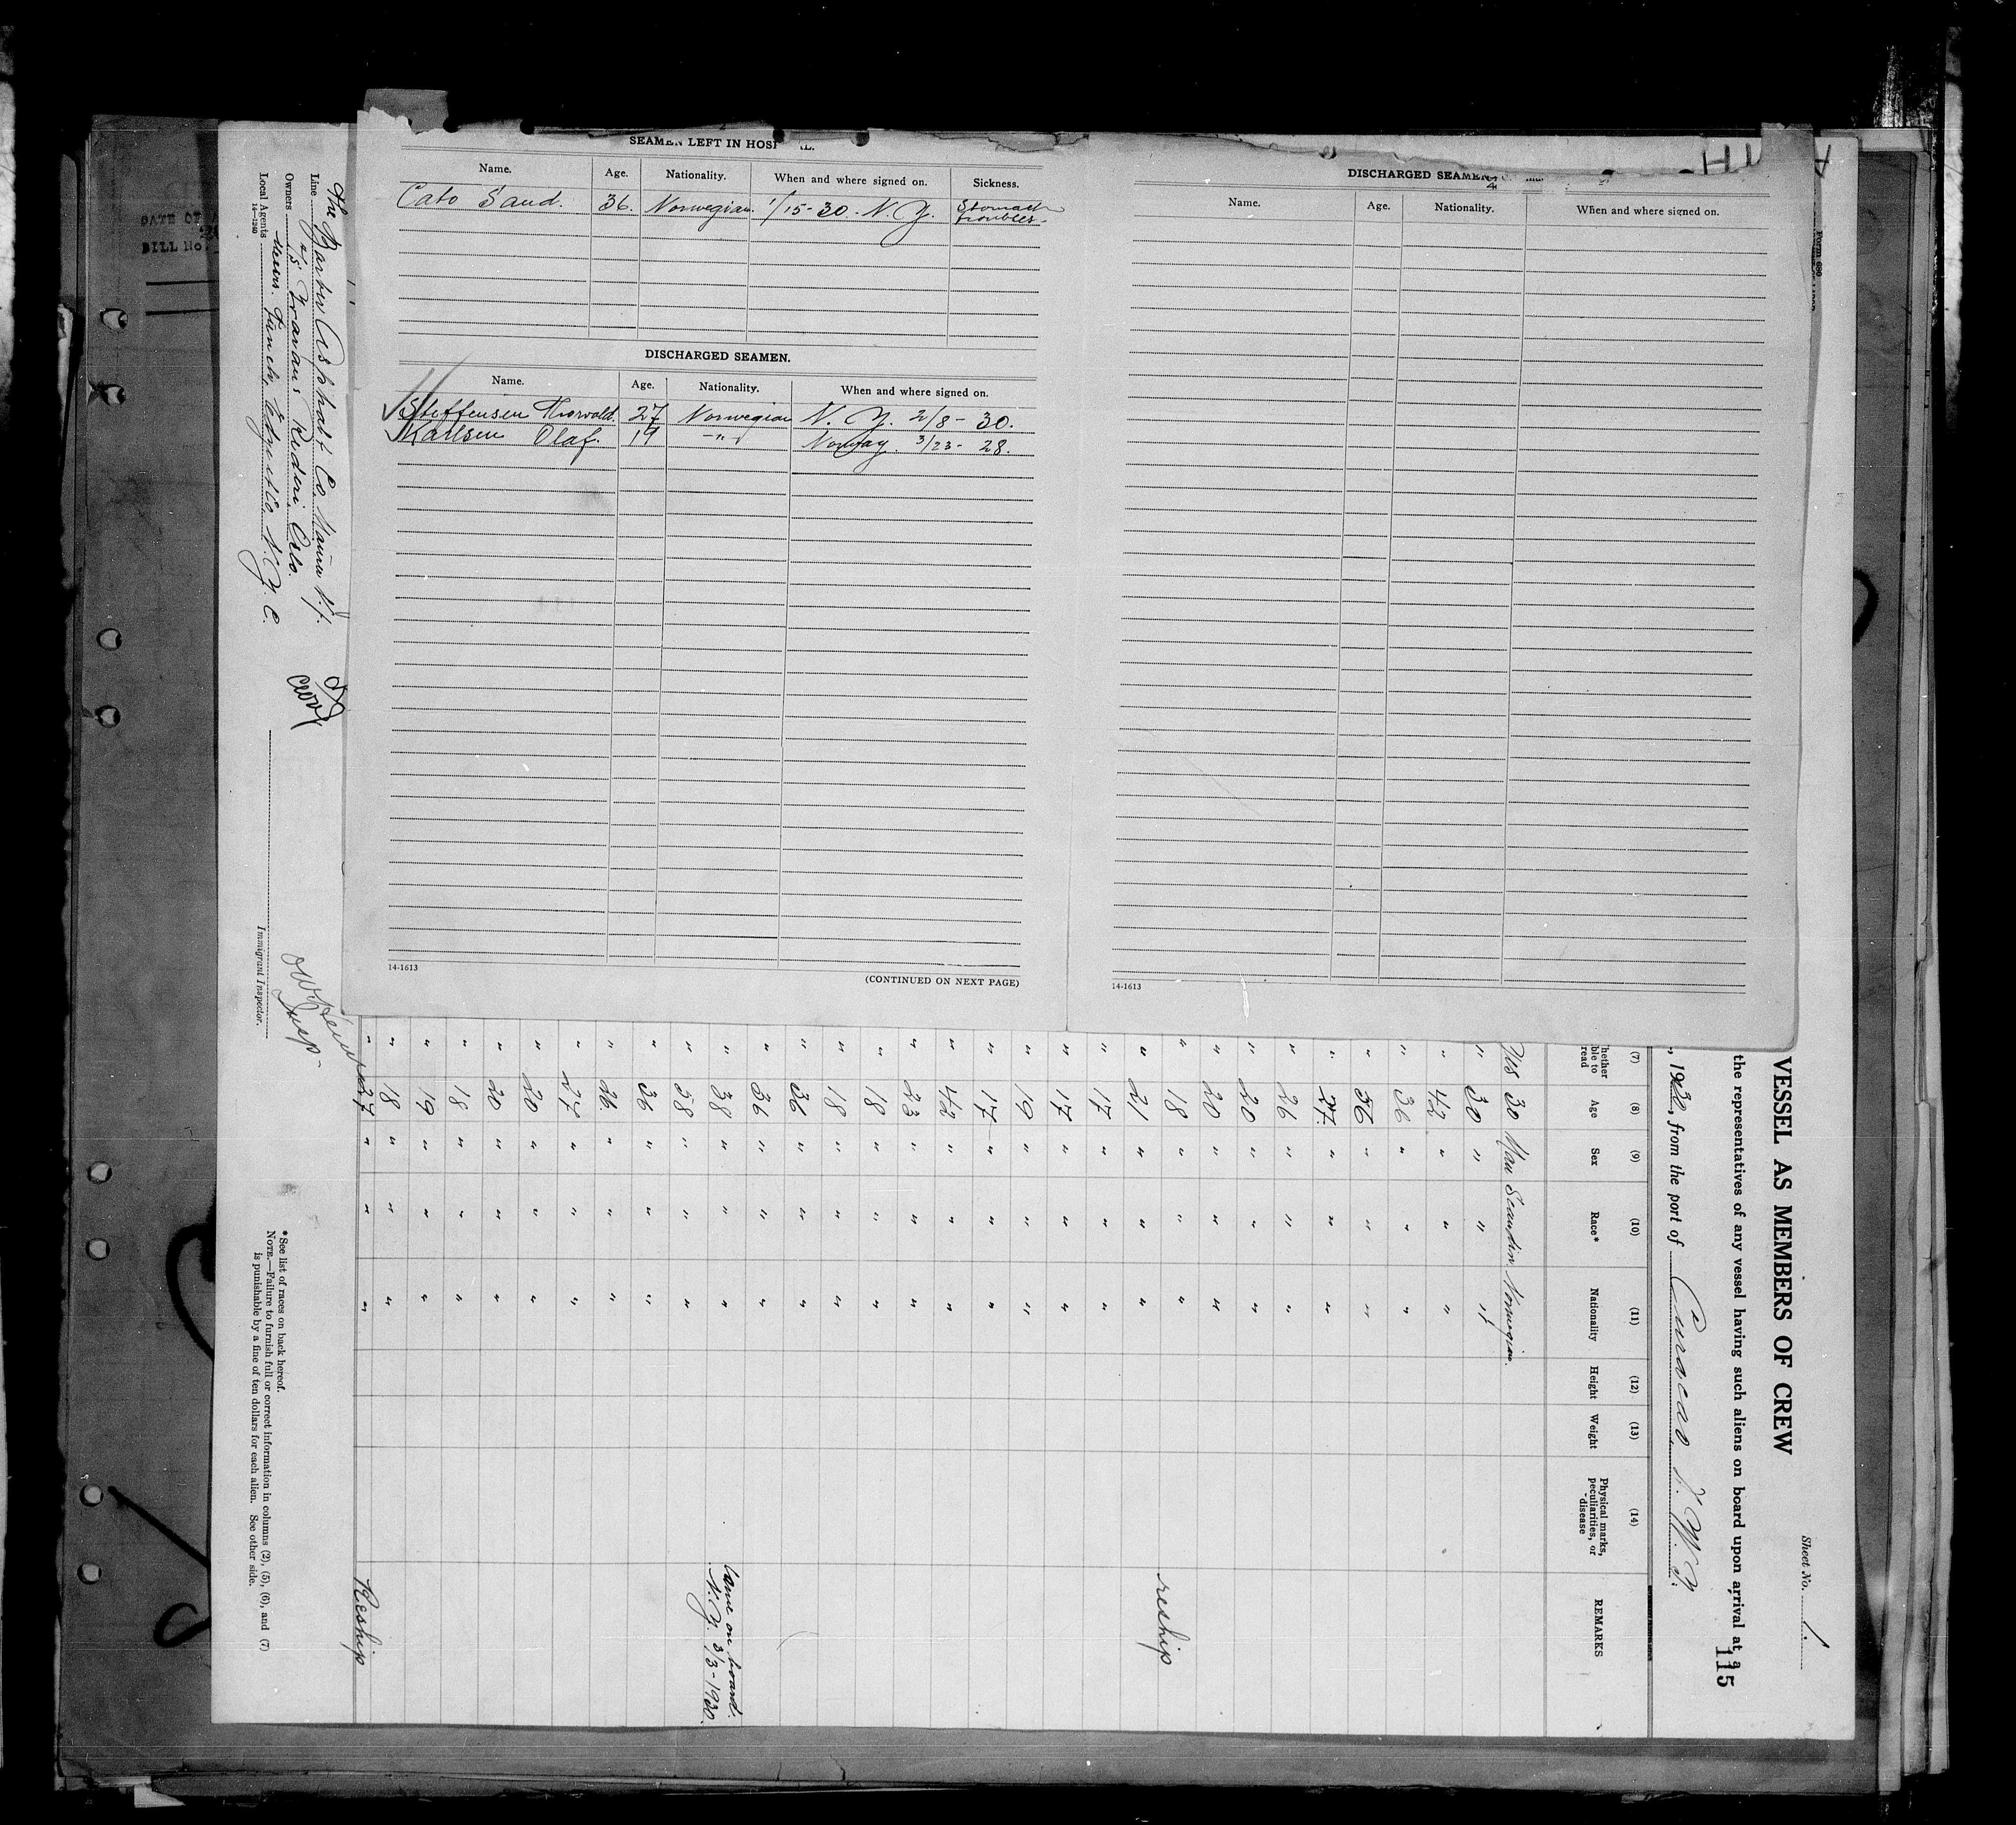 SEAMEN LEFT IN HOSP IL.
Name. Age. Nationality. When and where signed on. Sickness.
Cato Sand. 36. Norwegian. 1/15-30. N. Y. Stomach troubles.
DISCHARGED SEAMEN.
Name. Age. Nationality. When and where signed on.
Steffensen Thorvald. 27 Norwegian N. Y. 2/8-30.
Karlsen Olaf. 19 -"- Norway. 3/23-28.
14-1613
(CONTINUED ON NEXT PAGE)
DISCHARGED SEAMEN
Name. Age. Nationality. When and where signed on.
14-1613
Form 680
Sheet No. 1.
VESSEL AS MEMBERS OF CREW
the representatives of any vessel having such aliens on board upon arrival at a
115
, 1930, from the port of Curacao. D. W. I.
(7) (8) (9) (10) (11) (12) (13) (14)
hether ble to read Age Sex Race* Nationality Height Weight Physical marks, peculiarities, or disease REMARKS
Yes 30 Man Scandin. Norwegian.
" 30 " " "
" 42 " " "
" 36 " " "
" 56 " " "
" 27. " " "
" 26 " " "
" 20 " " "
" 20 " " "
" 18 " " "
" 21 " " " reship
" 17 " " "
" 17 " " "
" 19 " " "
" 17 " " "
" 42 " " "
" 23 " " "
" 18 " " "
" 18 " " "
" 36 " " "
" 36 " " "
" 38 " " " Came on board. N. Y. 3/3-1930.
" 58 " " "
" 36 " " "
" 26. " " "
" 27 " " "
" 20 " " "
" 20 " " "
" 18 " " "
" 19 " " "
" 18 " " "
" 27 " " " Reship
Line The Barber Asphalt Co. Maurer N. J.
Owners Rederi, Oslo.
Local Agents Messrs. Funch, Edye & Co. N. Y. C.
14-1240
Immigrant Inspector.
* See list of races on back hereof.
NOTE.—Failure to furnish full or correct information in columns (2), (5), (6), and (7)
is punishable by a fine of ten dollars for each alien. See other side.
BILL No.